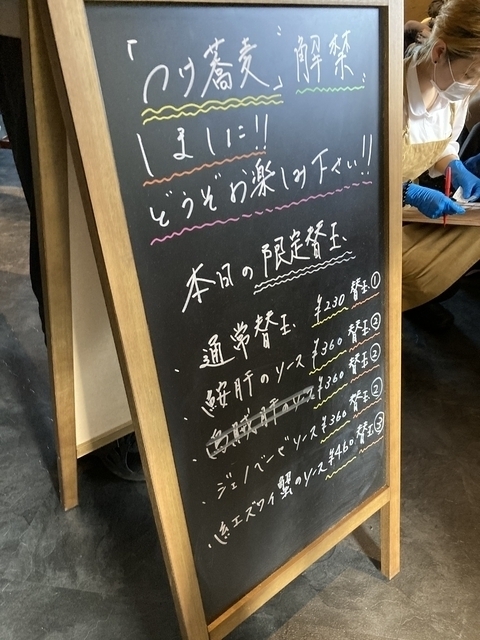 「つけ蕎麦」解禁
しました!!
どうぞお楽しみ下さい!!
本日の限定替玉
・通常替玉 ¥230 替玉①
・鮟肝のソース ¥360 替玉②
・烏賊肝のソース ¥360 替玉②
・ジェノベーゼソース ¥360 替玉②
・紅ズワイ蟹のソース ¥460 替玉③